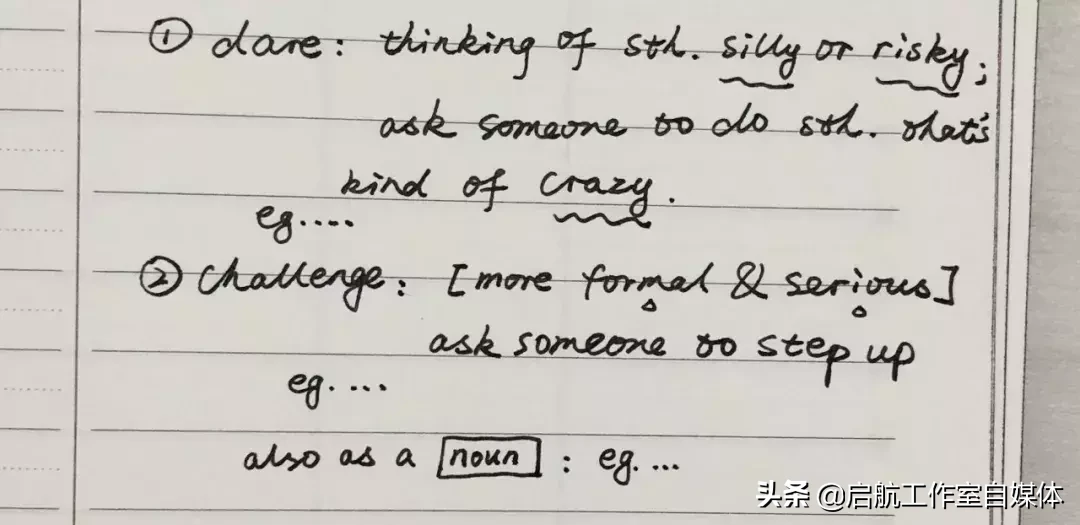 ① dare: thinking of sth. silly or risky;
ask someone to do sth. that's
kind of crazy.
eg....
② challenge: [more formal & serious]
ask someone to step up
eg. ...
also as a noun : eg. ...
头条 @启航工作室自媒体